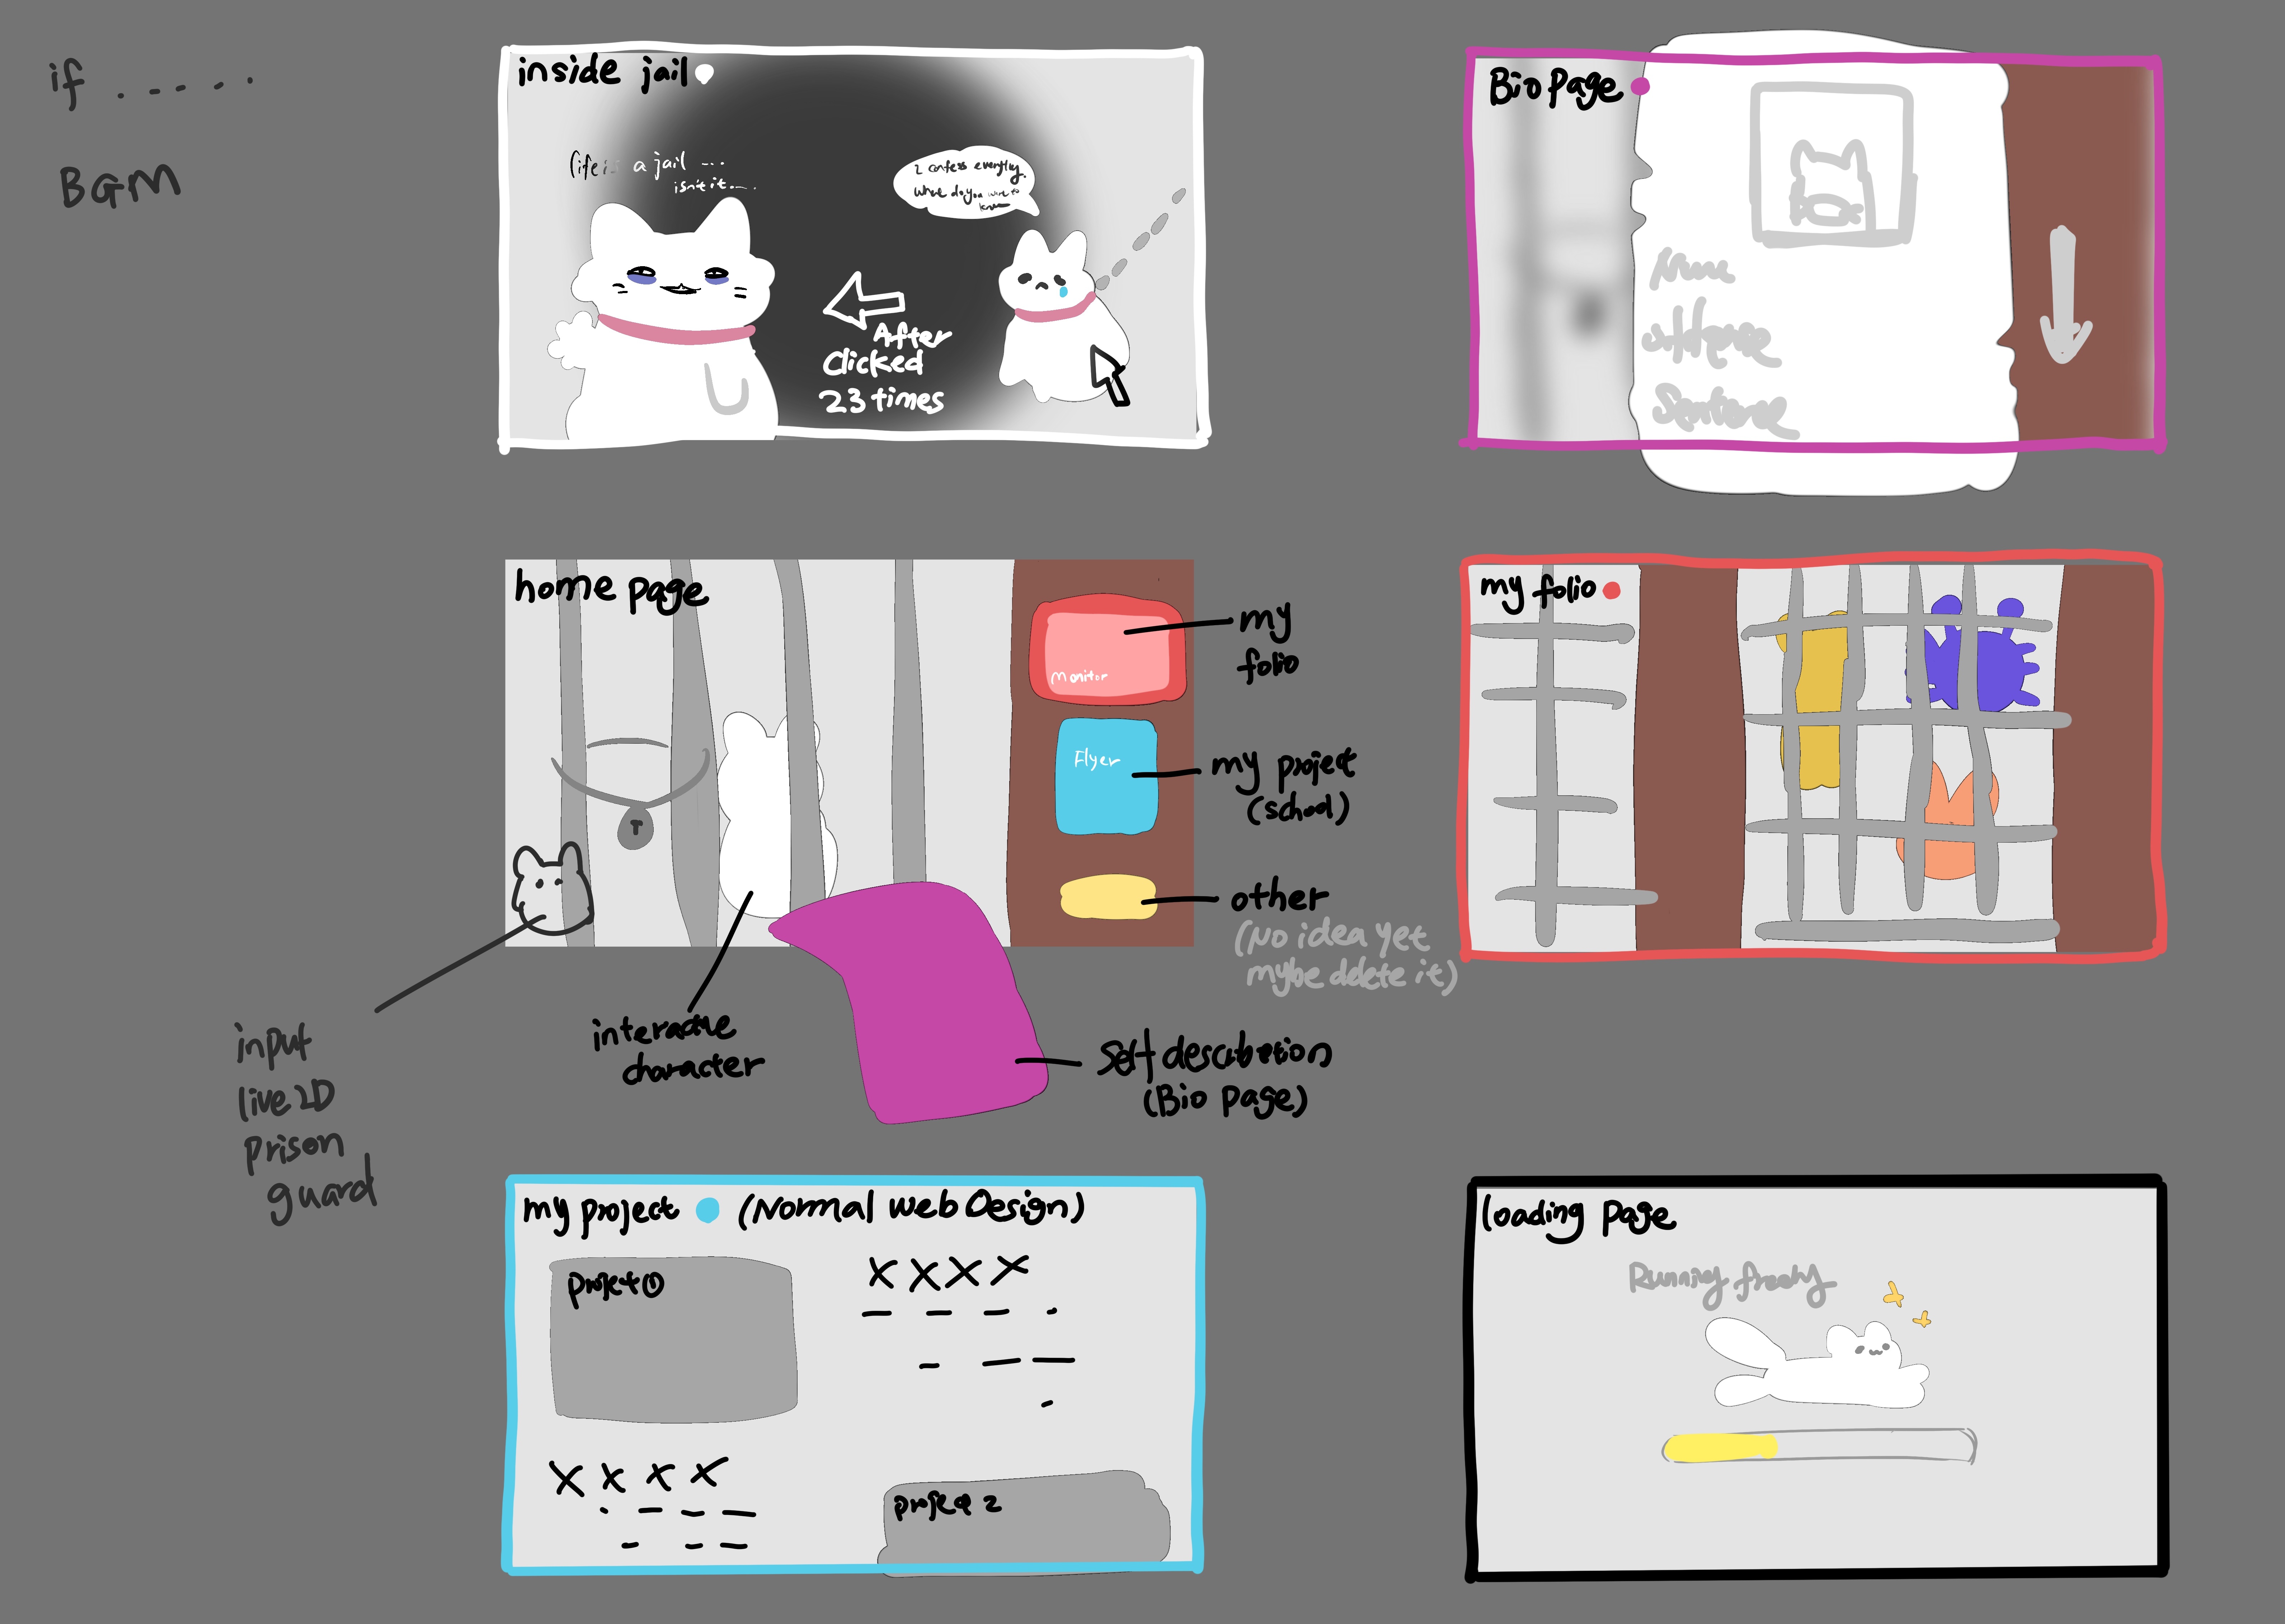 if . . . . . .
BaM
inside jail
life is a jail ...
isn't it....
I confess everything.
what do you want to
know
After
Clicked
23 times
Bio Page
Name
Sentence
home page
monitor
my
folio
Flyer
my project
(school)
other
(No idea yet
mybe ddete it)
T
input
live2D
prison
guard
interactive
character
self describetion
(Bio page)
my folio
my project (Normal web Design)
project 1
X X X X
X X X X
project 2
loading page
Running freely